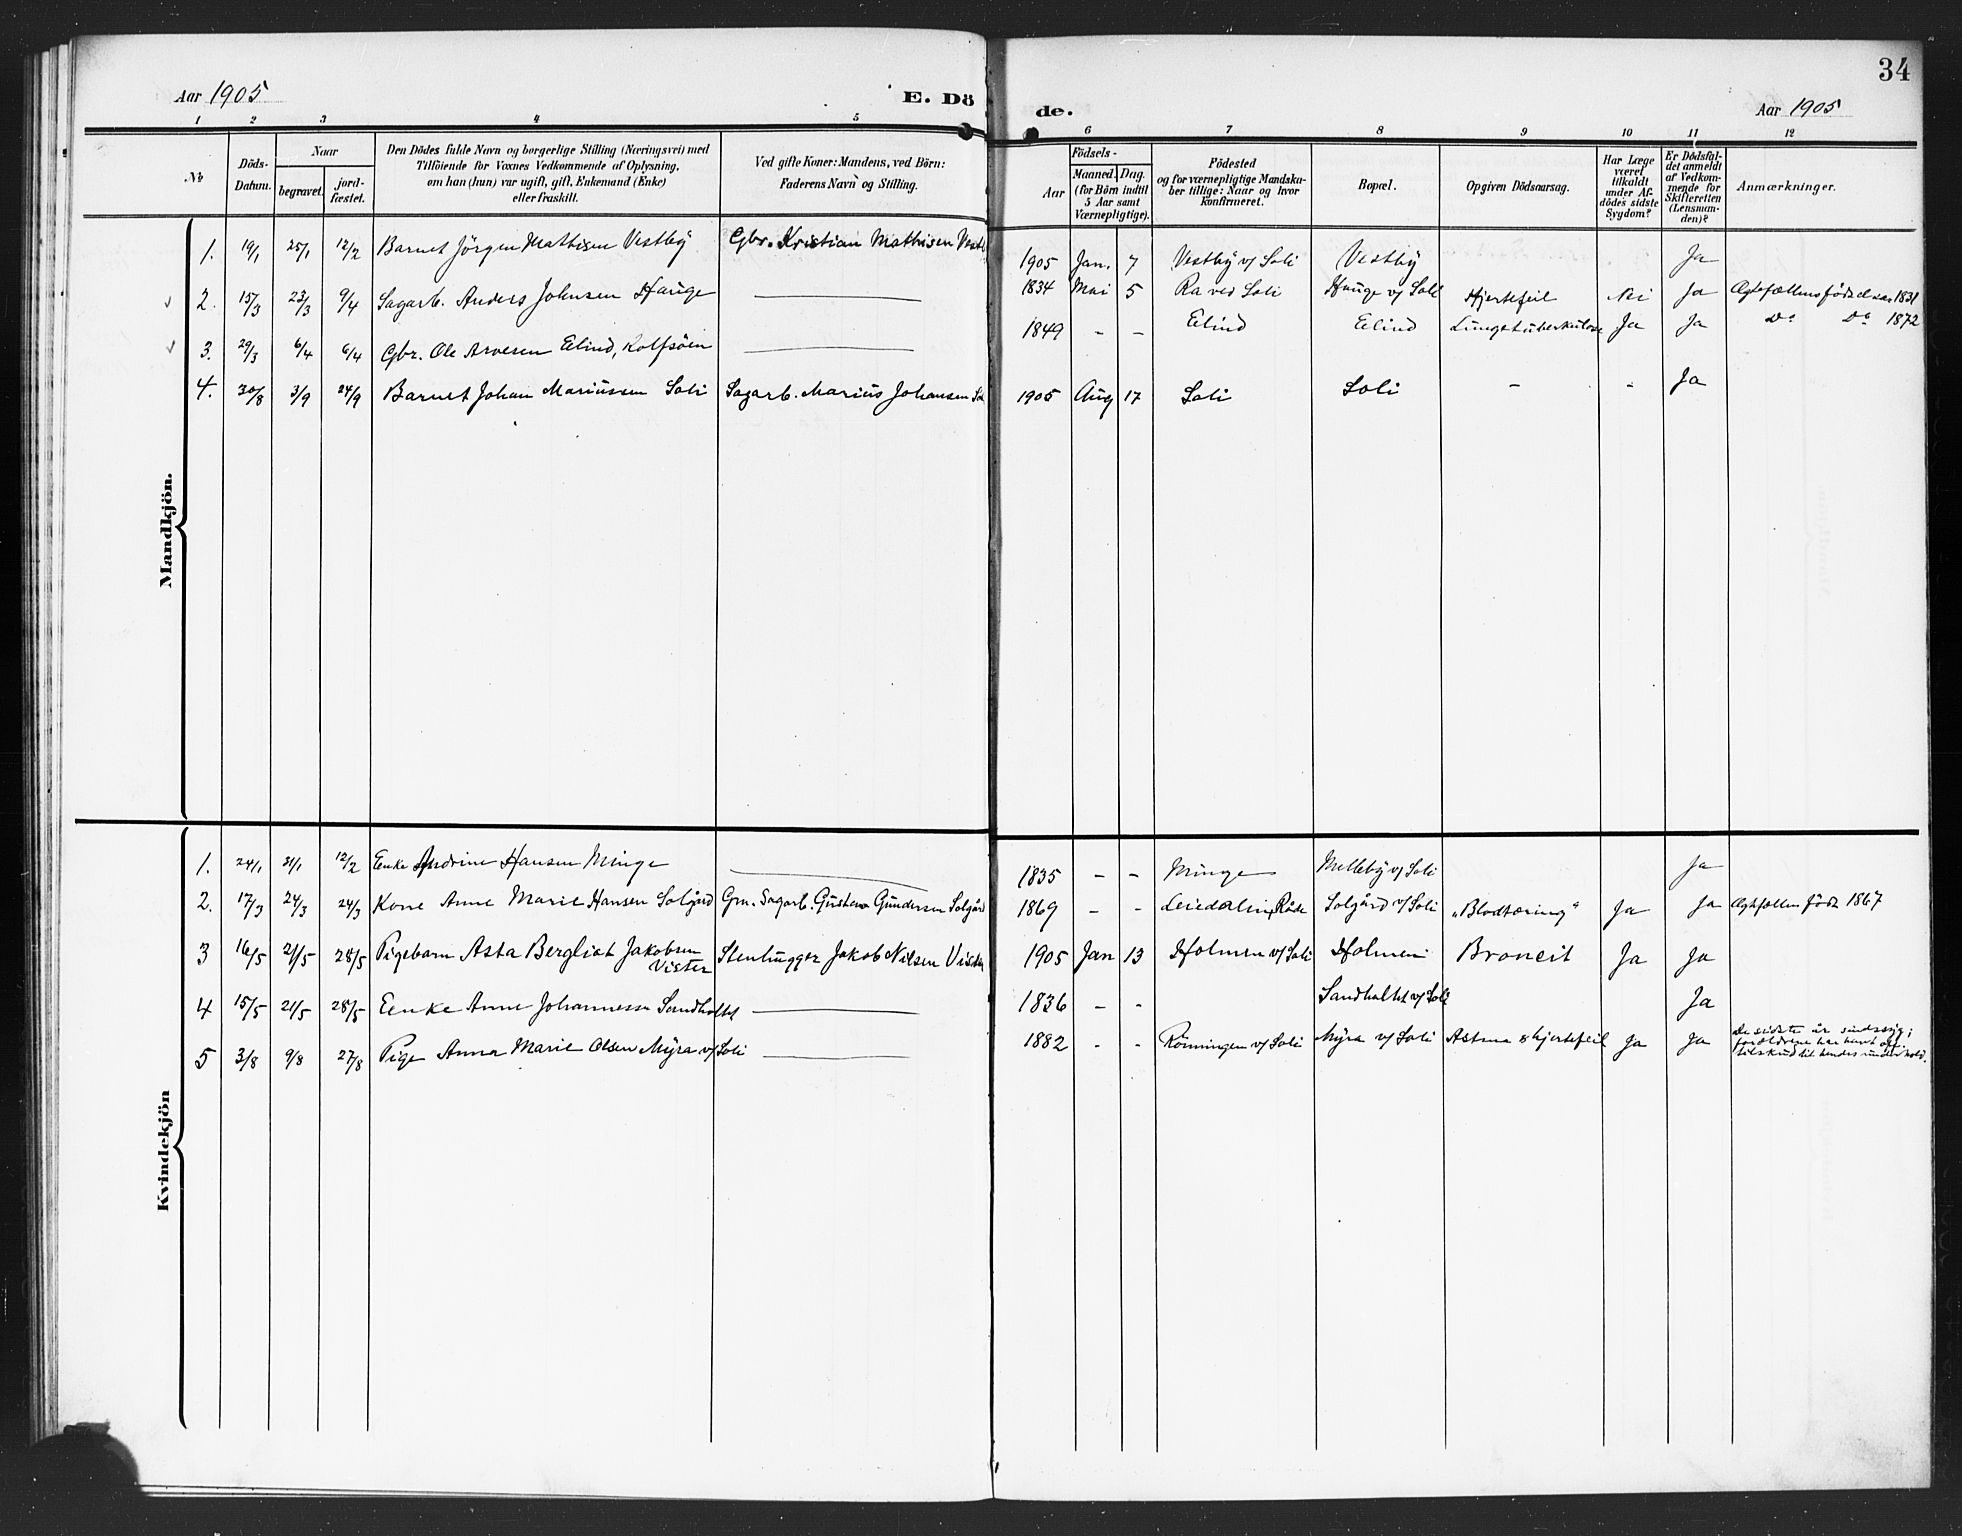 34
Aar 1905 E. Dö de. Aar 1905
1 2 3 4 5 6 7 8 9 10 11 12
№
Döds-Datum.
Naar
begravet.
jord-fæstet.
Den Dödes fulde Navn og borgerlige Stilling (Næringsvei) med
Tilföiende for Voxnes Vedkommende af Oplysning,
om han (hun) var ugift, gift, Enkemand (Enke)
eller fraskilt.
Ved gifte Koner: Mandens, ved Börn:
Faderens Navn og Stilling.
Födsels-
Aar
Maaned. Dag.
(for Börn indtil
5 Aar samt
Værnepligtige).
Födested
og for værnepligtige Mandska-
ber tillige: Naar og hvor
konfirmeret.
Bopæl.
Opgiven Dödsaarsag.
Har Læge
været
tilkaldt
under Af-
dödes sidste
Sygdom?
Er Dödsfal-
det anmeldt
af Vedkom-
mende for
Skifteretten
(Lensman-
den)?
Anmærkninger.
Mandkjön.
1. 19/1 25/1 12/2 Barnet Jörgen Mathisen Vestby Gbr. Kristian Mathisen 1905 Jan. 7 Vestby v/ Soli Vestby Ja
2. 15/3 23/3 9/4 Sagarb. Anders Johnsen Hauge — 1834 Mai 5 Ra ved Soli Hauge v/ Soli Hjertefeil Nei Ja Ægtefællens födselsaar 1831
3. 29/3 6/4 6/4 Gbr. Ole Arvesen Elind, Rolfsöen — 1849 - - Elind Elind Lungetuberkulose Ja Ja Do Do 1872
4. 30/8 3/9 24/9 Barnet Johan Mariussen Soli Sagarb. Marius Johansen 1905 Aug 17 Soli Soli - - Ja
Kvindekjön
1. 24/1 31/1 12/2 Enke Andrine Hansen Minge — 1835 - - Minge Melleby v/ Soli Ja
2. 17/3 24/3 24/3 Kone Anne Marie Hansen Solgård Gm. Sagarb. Gustava Gundersen Solgård 1869 - - Råde Solgård v/ Soli "Blodtæring" Ja Ja Ægtefællen född 1867
3 16/5 21/5 28/5 Pigebarn Asta Bergliot Jakobsen
Vister Stenhugger Jakob Nilsen Vister 1905 Jan 13 Holmen v/ Soli Holmen Broncit Ja Ja
4 15/5 21/5 28/5 Enke Anne Johannessen Sandholtet — 1836 - - Sandholtet v/ Soli Ja
5 3/8 9/8 27/8 Pige Anna Marie Olsen Myra v/ Soli — 1882 - - Rönningen v/ Soli Myra v/ Soli Astma & hjertefeil Ja Ja De sidste år sindssyg;
forældrene har havt off.
tilskud til hendes underhold.